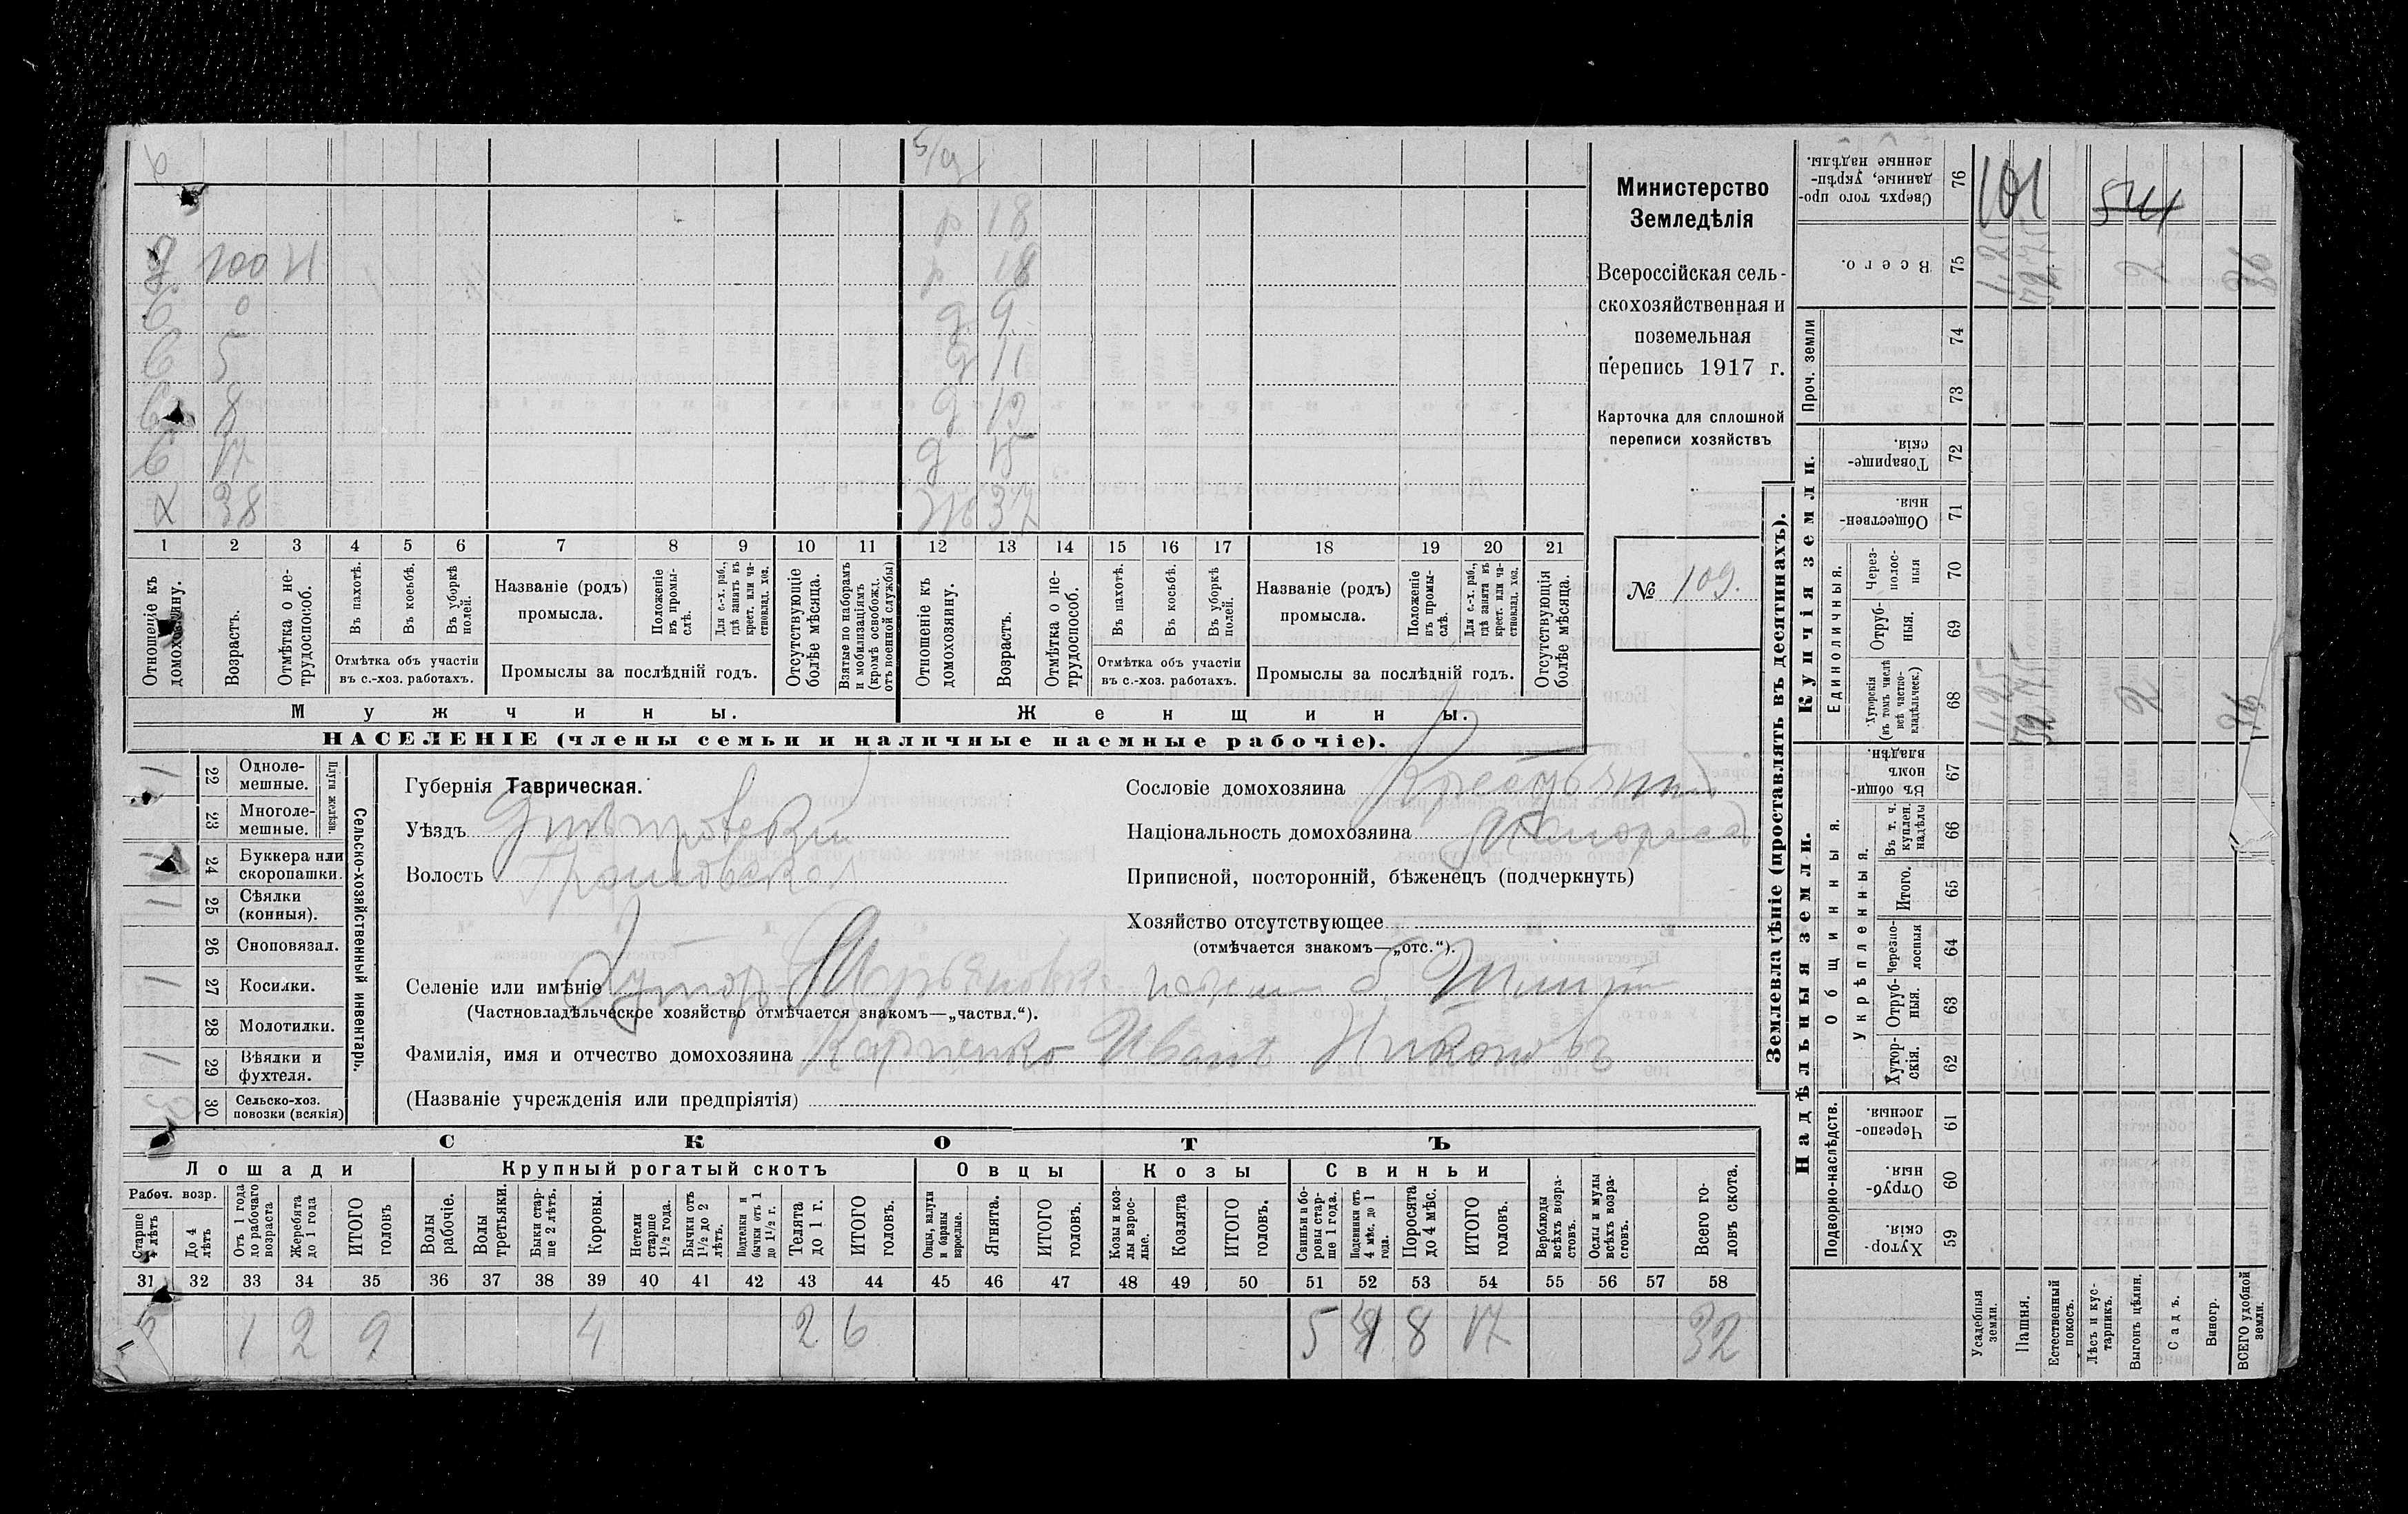 5/9
р 18
д 100 Н р 18
с 0 д 9
с 5 д 11
с 8 д 12
с 17 д 15
х 38 ж 37
1 2 3 4 5 6 7 8 9 10 11 12 13 14 15 16 17 18 19 20 21
Отношеніе къ домохозяину.
Возрастъ.
Отмѣтка о не-трудоспособ.
Въ пахотѣ.
Въ косьбѣ.
Въ уборкѣ полей.
Отмѣтка объ участіи въ с.-хоз. работахъ.
Названіе (родъ) промысла.
Положеніе въ промы-слѣ.
Для с.-х. раб., гдѣ занятъ въ крест. или ча-стновлад. хоз.
Промыслы за послѣдній годъ.
Отсутствующіе болѣе мѣсяца.
Взятые по наборамъ и мобилизаціямъ (кромѣ освобожд. отъ военной службы)
Отношеніе къ домохозяину.
Возрастъ.
Отмѣтка о не-трудоспособ.
Въ пахотѣ.
Въ косьбѣ.
Въ уборкѣ полей.
Отмѣтка объ участіи въ с.-хоз. работахъ.
Названіе (родъ) промысла.
Положеніе въ промы-слѣ.
Для с.-х. раб., гдѣ занята въ крест. или ча-стновлад. хоз.
Промыслы за послѣдній годъ.
Отсутствующія болѣе мѣсяца.
Мужчины. Женщины.
НАСЕЛЕНІЕ (члены семьи и наличные наемные рабочіе).
Министерство
Земледѣлія
Всероссійская сель-
скохозяйственная и
поземельная
перепись 1917 г.
Карточка для сплошной
переписи хозяйствъ
№ 109.
Сельско-хозяйственный инвентарь.
Плуги желѣзн.
1 22 Одноле-мешные.
23 Многоле-мешные.
1 24 Буккера или скоропашки.
1 25 Сѣялки (конныя).
26 Сноповязал.
1 27 Косилки.
28 Молотилки.
1 29 Вѣялки и фухтеля.
30 Сельско-хоз. повозки (всякія)
Губернія Таврическая.
Уѣздъ Днѣпровскій
Волость
Сословіе домохозяина Крестьянинъ
Національность домохозяина
Приписной, посторонній, бѣженецъ (подчеркнуть)
Хозяйство отсутствующее
(отмѣчается знакомъ—„отс.“).
Селеніе или имѣніе Хуторъ
(Частновладѣльческое хозяйство отмѣчается знакомъ—„частвл.“).
Фамилія, имя и отчество домохозяина Карпенко Иванъ Никоновъ
(Названіе учрежденія или предпріятія)
СКОТЪ
Лошади Крупный рогатый скотъ Овцы Козы Свиньи
Рабоч. возр.
Старше 4 лѣтъ
До 4 лѣтъ
Отъ 1 года до рабочаго возраста
Жеребята до 1 года
ИТОГО головъ
Волы рабочіе.
Волы третьяки.
Быки стар-ше 2 лѣтъ.
Коровы.
Нетели старше 1½ года.
Бычки отъ 1½ до 2 лѣтъ.
Подтелки и бычки отъ 1 до 1½ г.
Телята до 1 г.
ИТОГО головъ.
Овцы, валухи и бараны взрослые.
Ягнята.
ИТОГО головъ.
Козы и коз-лы взрос-лые.
Козлята
ИТОГО головъ.
Свиньи и бо-ровы стар-ше 1 года.
Подсвинки отъ 4 мѣс. до 1 года.
Поросята до 4 мѣс.
ИТОГО головъ.
Верблюды всѣхъ возра-стовъ.
Ослы и мулы всѣхъ возра-стовъ.
Всего го-ловъ скота.
31 32 33 34 35 36 37 38 39 40 41 42 43 44 45 46 47 48 49 50 51 52 53 54 55 56 57 58
1 2 9 4 2 6 5 4 8 17 32
Землевладѣніе (проставлять въ десятинахъ).
Надѣльныя земли.
Купчія земли.
Проч. земли
Подворно-наслѣдств.
Общинныя.
Укрѣпленныя.
Единоличныя.
Сверхъ того про-данные, укрѣп-ленные надѣлы. 76 101 544
Всего. 75 1,25 2 86
74
73
Товарище-скія. 72
Обществен-ныя. 71
Через-полос-ныя 70
Отруб-ныя. 69
Хуторскія (въ томъ числѣ всѣ частно-владѣльческ.) 68 1,25 2 86
Въ общин-номъ владѣн. 67
Въ т. ч. куплен. надѣлы 66
Итого. 65
Черезпо-лосныя 64
Отруб-ныя. 63
Хутор-скія. 62
Черезпо-лосныя. 61
Отруб-ныя. 60
Хутор-скія. 59
Усадебныя земли.
Пашня.
Естественный покосъ.
Лѣсъ и кус-тарникъ.
Выгонъ цѣлин.
Садъ.
Виногр.
ВСЕГО удобной земли.